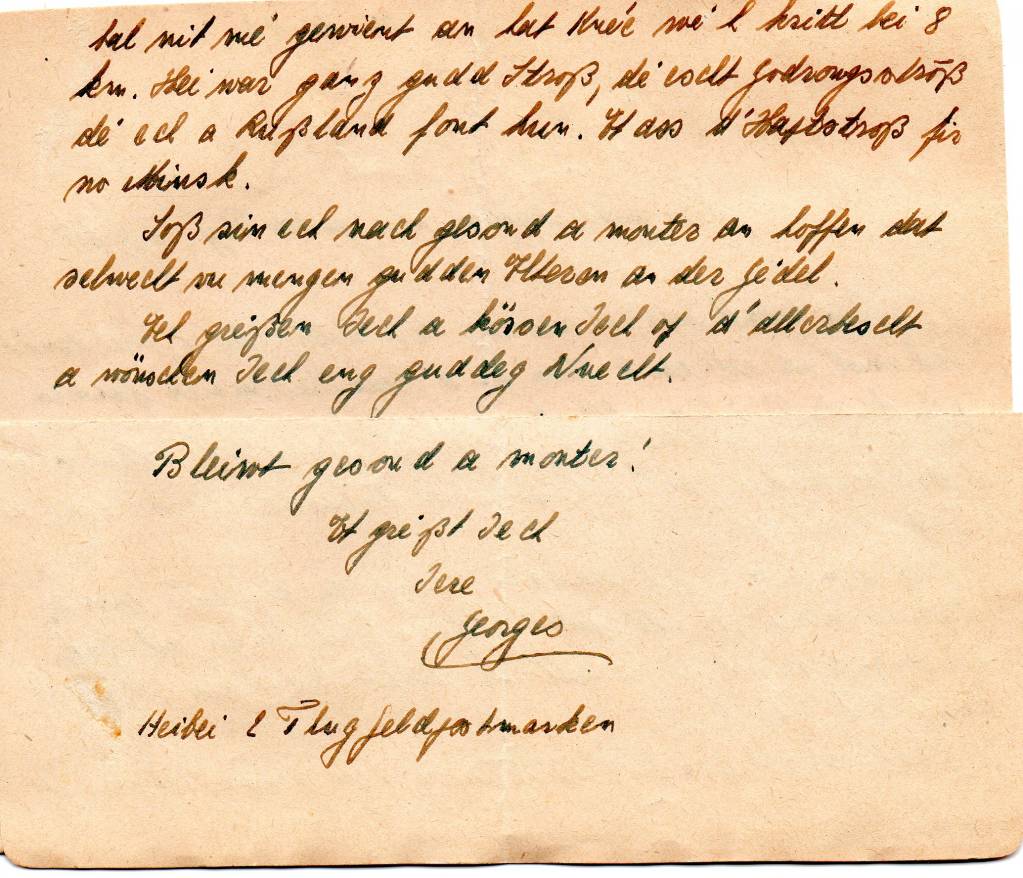 bal nit mé gewient an dat Kréé wé l hritt bei 8
km. Hei war ganz gudd Stroß, dé escht Godrongsstroß
dé ech a Rußland font hun. Et ass d'Haptstroß fir
no Minsk.
Soß sin ech nach gesond a monter an hoffen dat
selwecht vu mengen gudden Elteren an der Jédel.
Ech greißen Iech a kössen Iech of d'allerbescht
a wönschen Iech eng guddeg Nuecht.
Bleiwt gesond a monter!
Et greißt Iech
Iere
Georges
Heibei 2 Flugfeldpostmarken